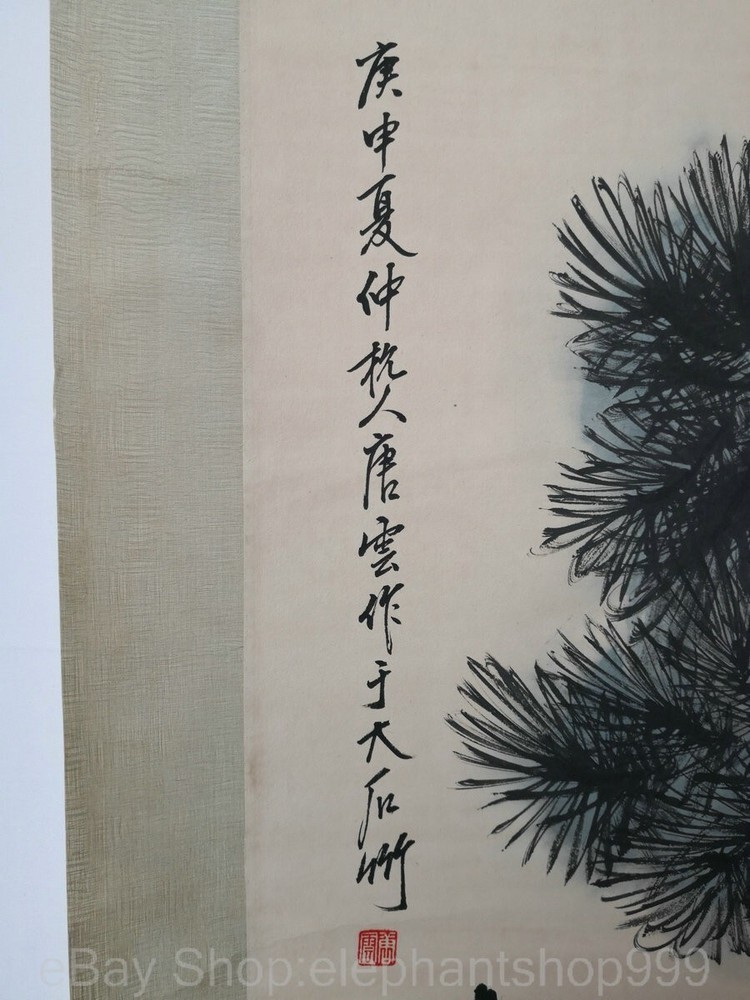 庚申夏仲杭人唐雲作于大石
唐雲
eBay Shop:elephantshop999